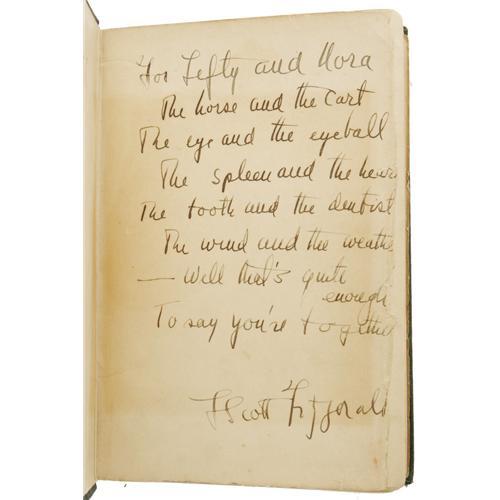 For Lefty and Nora
The horse and the cart
The eye and the eyeball
The spleen and the
The tooth and the dentist
The wind and the weathe
— Well that's quite
enough
To say you're together
F Scott Fitzgerald